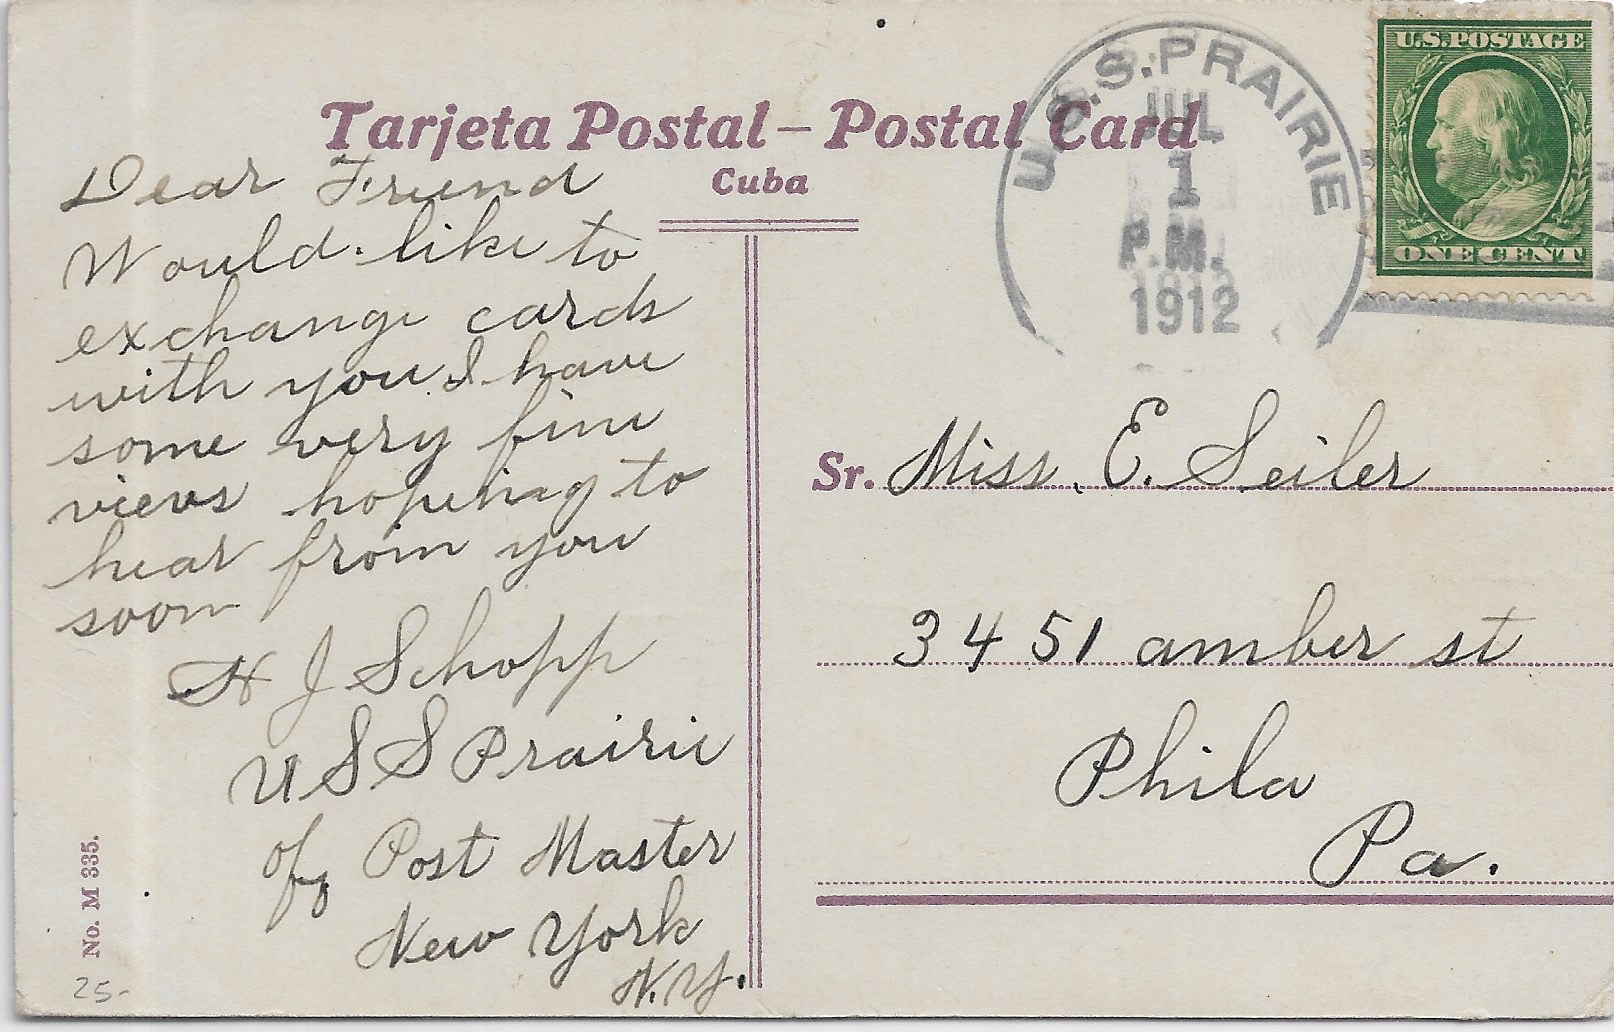 Tarjeta Postal – Postal Card
Cuba
U.S.S. PRAIRIE
JUL
1
P.M.
1912
U.S. POSTAGE
ONE CENT
Dear Friend
Would like to
exchange cards
with you I have
some very fine
views hopeing to
hear from you
soon
H J Schopp
U S S Prairie
Post Master
New York
N.Y.
Sr. Miss. E. Seiler
3451 amber st
Phila
Pa.
No. M 335.
25-